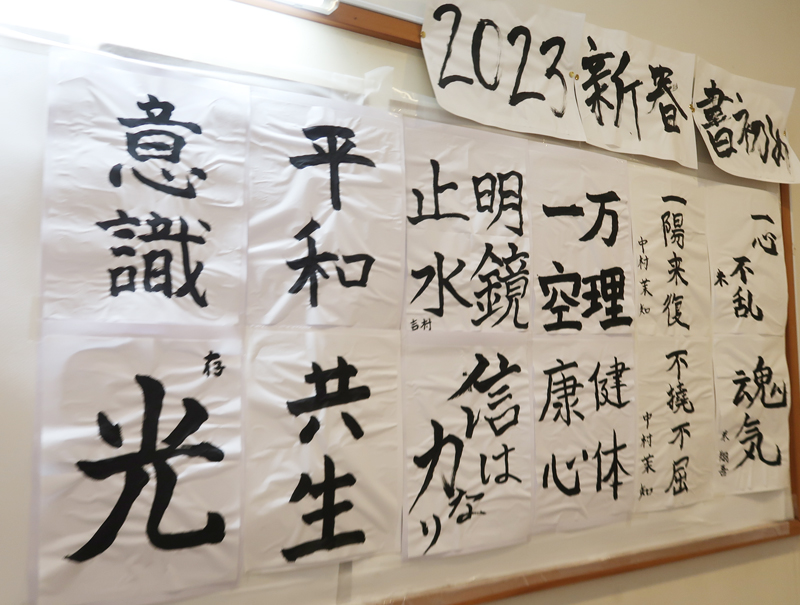 2023 新春 書初め
一心
不乱
来
魂気
米類吾
一陽来復
中村茉知
不撓不屈
中村茉知
万理
一空
健体
康心
明鏡
止水
吉村
信は
力なり
平和
共生
意識
存
光